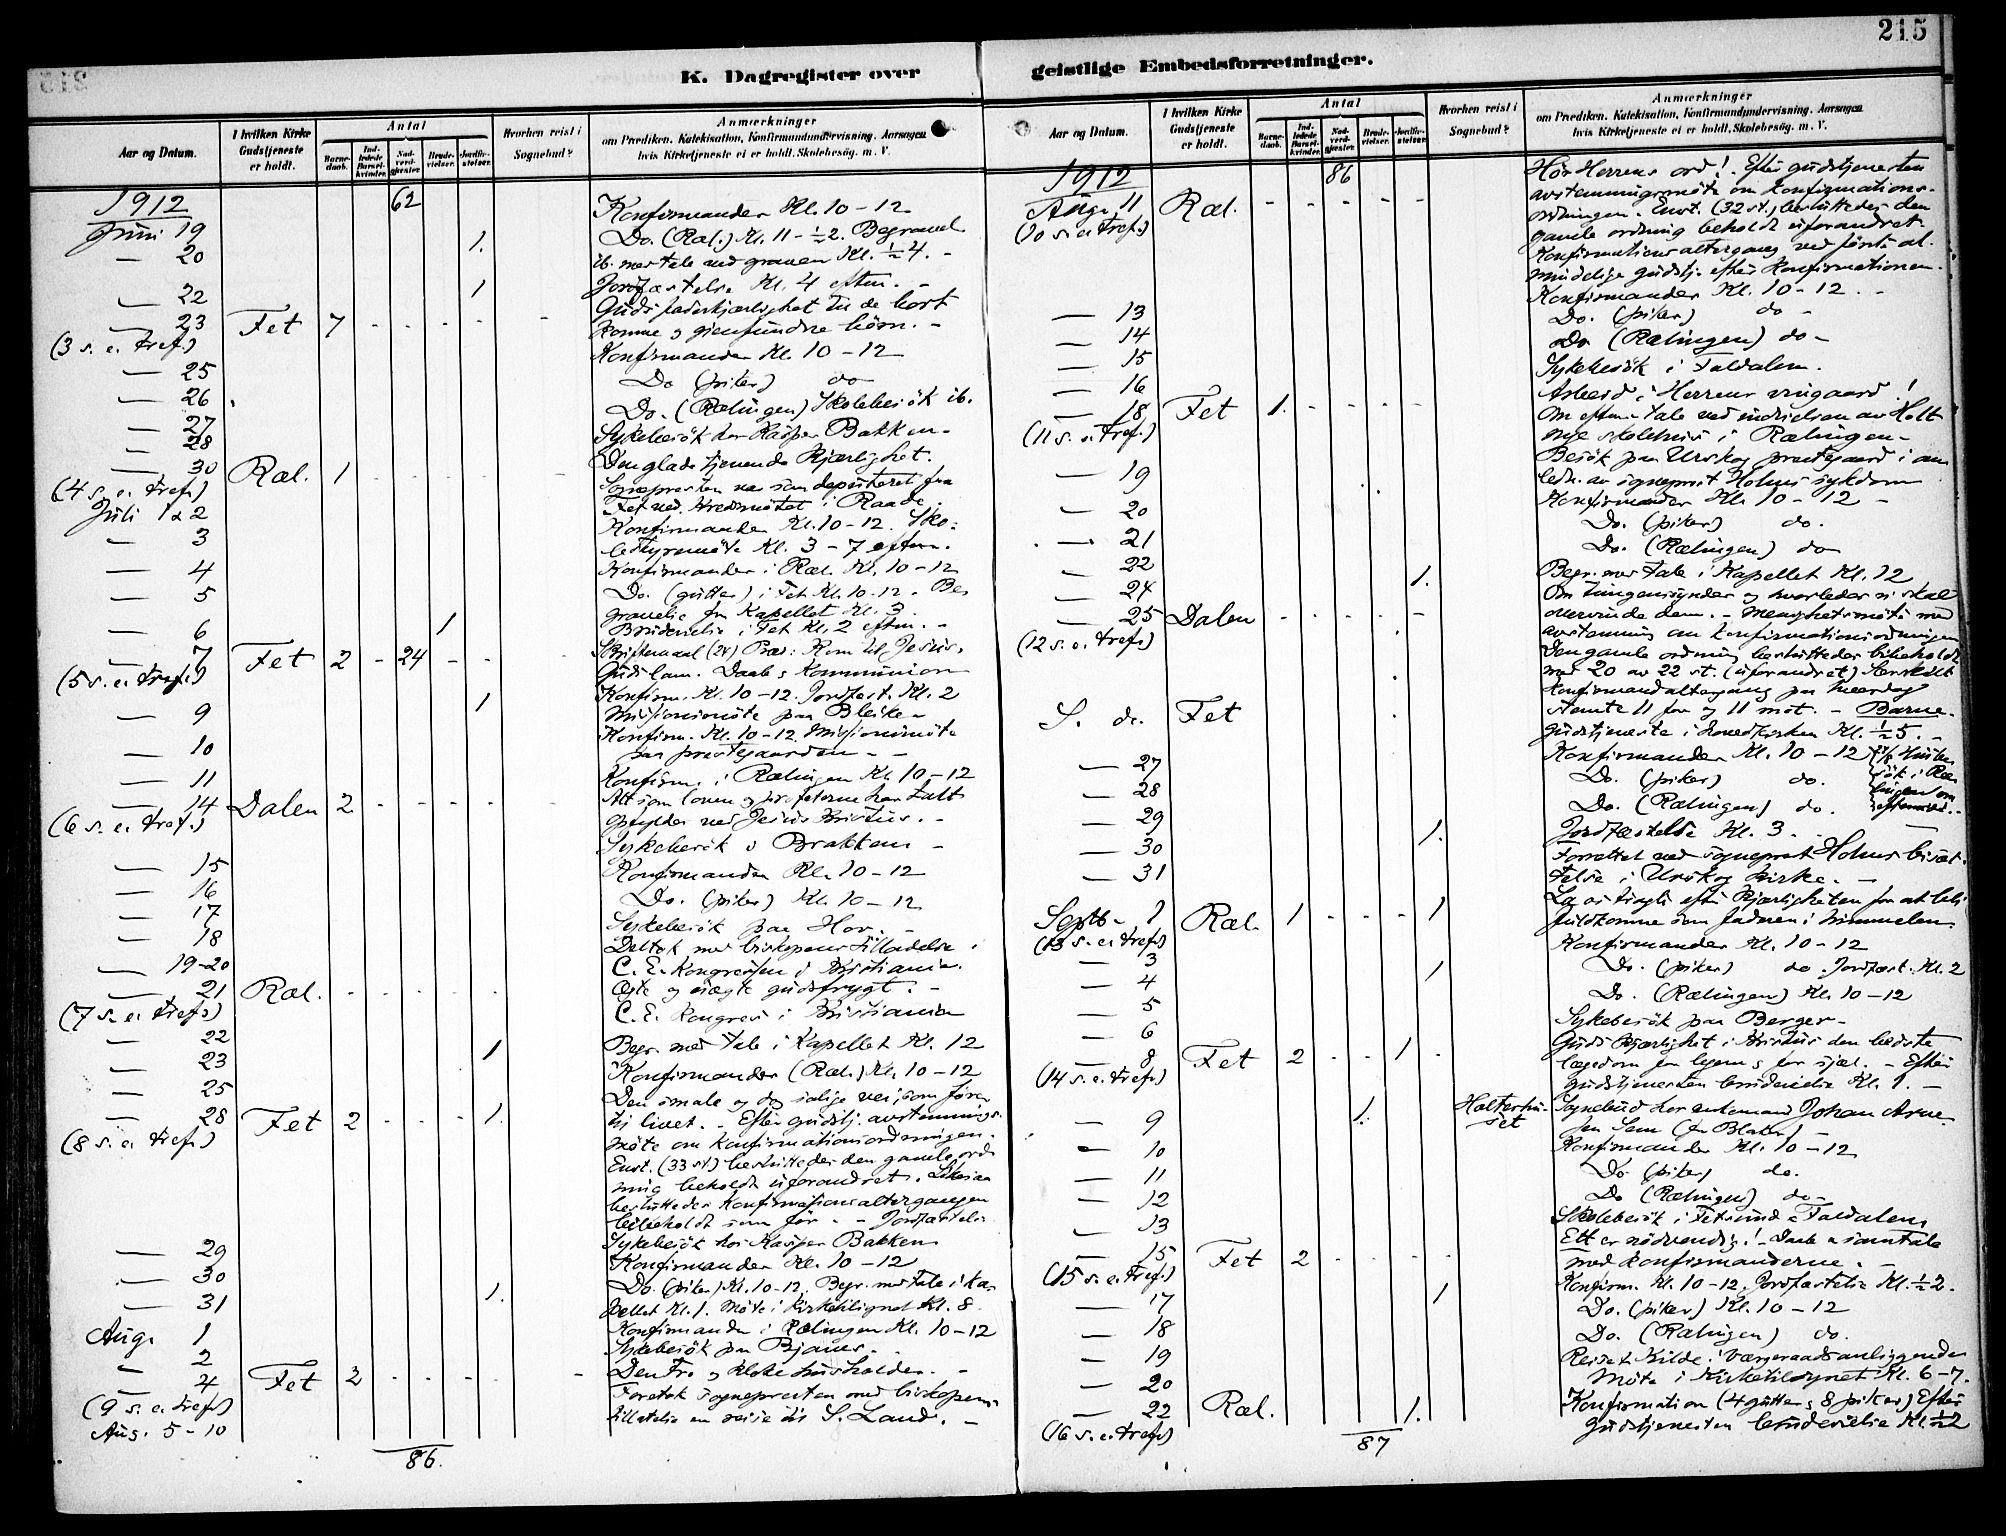 215
K. Dagregister over geistlige Embedsforretninger.
Aar og Datum.
I hvilken Kirke Gudstjeneste er holdt.
Antal
Barnedaab.
Indledede Barselkvinder.
Nadverdgjæster.
Brudevielser.
Jordfæstelser.
Hvorhen reist i Sognebud?
Anmærkninger
om Prædiken. Katekisation, Konfirmandundervisning. Aarsagen
hvis Kirketjeneste ei er holdt. Skolebesög. m. V.
1912 62
Juni 19 Konfirmander Kl. 10-12
20 1. Do. (Ræl.) Kl. 11-½2. Begravel
ib. med tale ved graven Kl. ½4.
22 1 Jordfæstelse Kl. 4 eftm.
23 Fet 7 - - - - - Guds faderkjærlighet til de bort
(3 s. e. tref.) komne og gjenfundne börn. -
25 Konfirmander Kl. 10-12
26 Do (piker) do
27 Do. (Rælingen) Skolebesök ib.
28 Sykebesök hos Kasper Bakken
30 Ræl. 1 Den glade tjenende kjærlighet.
(4 s. e. tref.)
Juli 1 & 2 Sognepresten var som deputeret fra
Fet ved kredsmötet i Raade.
3 Konfirmander Kl. 10-12. Sko=
lestyremöte Kl. 3-7 eftm.
4 Konfirmander i Ræl. Kl. 10-12
5 Do. (gutter) i Fet Kl. 10-12. Be
gravelse fra Kapellet Kl. 3.
6 1 Brudevielse i Fet Kl. 2 eftm. -
7 Fet 2 - 24 - - - Skriftemaal (24) Præs: Kom til Jesus,
(5 s. e. tref.) Guds lam. Daab & Kommunion
9 1 Konfirm. Kl. 10-12. Jordfæst. Kl. 2
Missionsmöte paa Bleiken
10 Konfirm. Kl. 10-12. Missionsmöte
paa prestegaarden - -
11 Konfirm. i Rælingen Kl. 10-12
14 Dalen 2 - - - - Alt som loven og profeterne har talt
(6 s. e. tref.) opfyldes ved Jesus Kristus. -
15 Sykebesök i Brakken -
16 Konfirmander Kl. 10-12
17 Do. (piker) Kl. 10-12
18 Sykebesök paa Hov. -
19-20 Deltok med biskopens tilladelse i
C. E. Kongressen i Kristiania.
21 Ræl. - - - - - Ægte og uægte gudsfrygt. -
(7 s. e. tref.)
22 C. E. Kongres i Kristiania
23 1 Begr. med tale i Kapellet Kl. 12
25 Konfirmander (Ræl.) Kl. 10-12
28 Fet 2 - - - 1. Den smale og dog salige vei, som förer
(8 s. e. tref.) til livet. - Efter gudstj. avstemnings-
möte om konfirmationsordningen.
Enst. (33 st.) besluttedes den gamle ord
ning beholdt uforandret. Likesaa
besluttedes konfirmationsaltergangen
bibeholdt som för. - Jordfæstelse
29 Sykebesök hos Kasper Bakken
30 Konfirmander Kl. 10-12
31 1. Do. (piker) Kl. 10-12. Begr. med tale i Ka
pellet Kl. 1. Möte i kirketilsynet Kl. 8.
Aug. 1 Konfirmander i Rælingen Kl. 10-12
2 Sykebesök paa
4 Fet 2 - - - - - Den tro og kloke husholder. -
(9 s. e. tref.)
Aug. 5-10 Foretok sognepresten med biskopens
tillatelse en reise til S. Land. -
86.
Aar og Datum.
I hvilken Kirke Gudstjeneste er holdt.
Antal
Barnedaab.
Indledede Barselkvinder.
Nadverdgjæster.
Brudevielser.
Jordfæstelser.
Hvorhen reist i Sognebud?
Anmærkninger
om Prædiken. Katekisation, Konfirmandundervisning. Aarsagen
hvis Kirketjeneste ei er holdt. Skolebesög. m. V.
1912 86
Aug. 11 Ræl. - - - - - Hör Herrens ord! Efter gudstjenesten
(10 s. e. tref.) avstemningsmöte om konfirmations-
ordningen. Enst. (32 st.) besluttedes den
gamle ordning beholdt uforandret.
Konfirmationsaltergang ved förste al.
mindelige gudstj. efter konfirmationen.
13 Konfirmander Kl. 10-12. -
14 Do. (piker) do -
15 Do (Rælingen) do -
16 Sykebesök i Faldalen.
18 Fet 1. - - - - Arbeid i Herrens vingaard!
(11 s. e. tref.) Om eftm. tale ved indvielsen av Holt
nye skolehus i Rælingen -
19 Besök paa Urskog prestegaard i an
ledn. av sogneprest Holms sykdom
20 Konfirmander Kl. 10-12 -
21 Do. (piker) do.
22 Do. (Rælingen) do
24 1. Begr. med tale i Kapellet Kl. 12
25 Dalen - - - - - Om tungesynder og hvorledes vi skal
(12 s. e. tref.) overvinde dem. - Menighetsmöte med
avstemning om konfirmationsordningen
Den gamle ordning besluttedes bibeholdt
med 20 av 22 st. (uforandret) Særskilt
konfirmandaltergang paa hverdag
stemte 11 for og 11 mot. - Barne-
S. d. Fet gudstjeneste i hovedkirken Kl. ½5. -
27 Konfirmander Kl. 10-12
28 Do. (piker) do.
29 Do. (Rælingen) do.
30 1. Jordfæstelse Kl. 3.
31 Forrettet ved sogneprest Holms bisæt-
telse i Urskog kirke. -
Septb. 1 Ræl. 1 - - - 1 La os tragte efter kjærligheten for at bli
(13 s. e. tref.) fuldkomne som faderen i himmelen
3 Konfirmander Kl. 10-12
4 1 Do. (piker) do. Jordfæst. Kl. 2
5 Do. (Rælingen) Kl. 10-12
6 Sykebesök paa Berger -
8 Fet 2 - - 1 - Guds kjærlighet i Kristus den bedste
(14 s. e. tref.) lægedom for legem & for sjæl. - Efter
gudstjenesten brudevielse Kl. 1. -
9 1. Holterhu-
set Sognebud hos enkemand Johan Arne
sen Sem
10 Konfirmander Kl. 10-12
11 Do (piker) do.
12 Do (Rælingen) do -
13 Skolebesök i Fetsund & Faldalen
15 Fet 2 - - - - Ett er nödvendig! - Daab & samtale
(15 s. e. tref.) med konfirmanderne. -
17 1 Konfirm. Kl. 10-12. Jordfæstelse Kl. ½2.
18 Do. (piker) Kl. 10-12
19 Do. (Rælingen) do.
20 Reiset Kilde i Værgeraadsanliggender
Möte i Kirketilsynet Kl. 6-7.
22 Ræl. 1. Konfirmation (4 gutter & 8 piker) Efter
(16 s. e. tref.) gudstjenesten brudevielse Kl. ½2
87